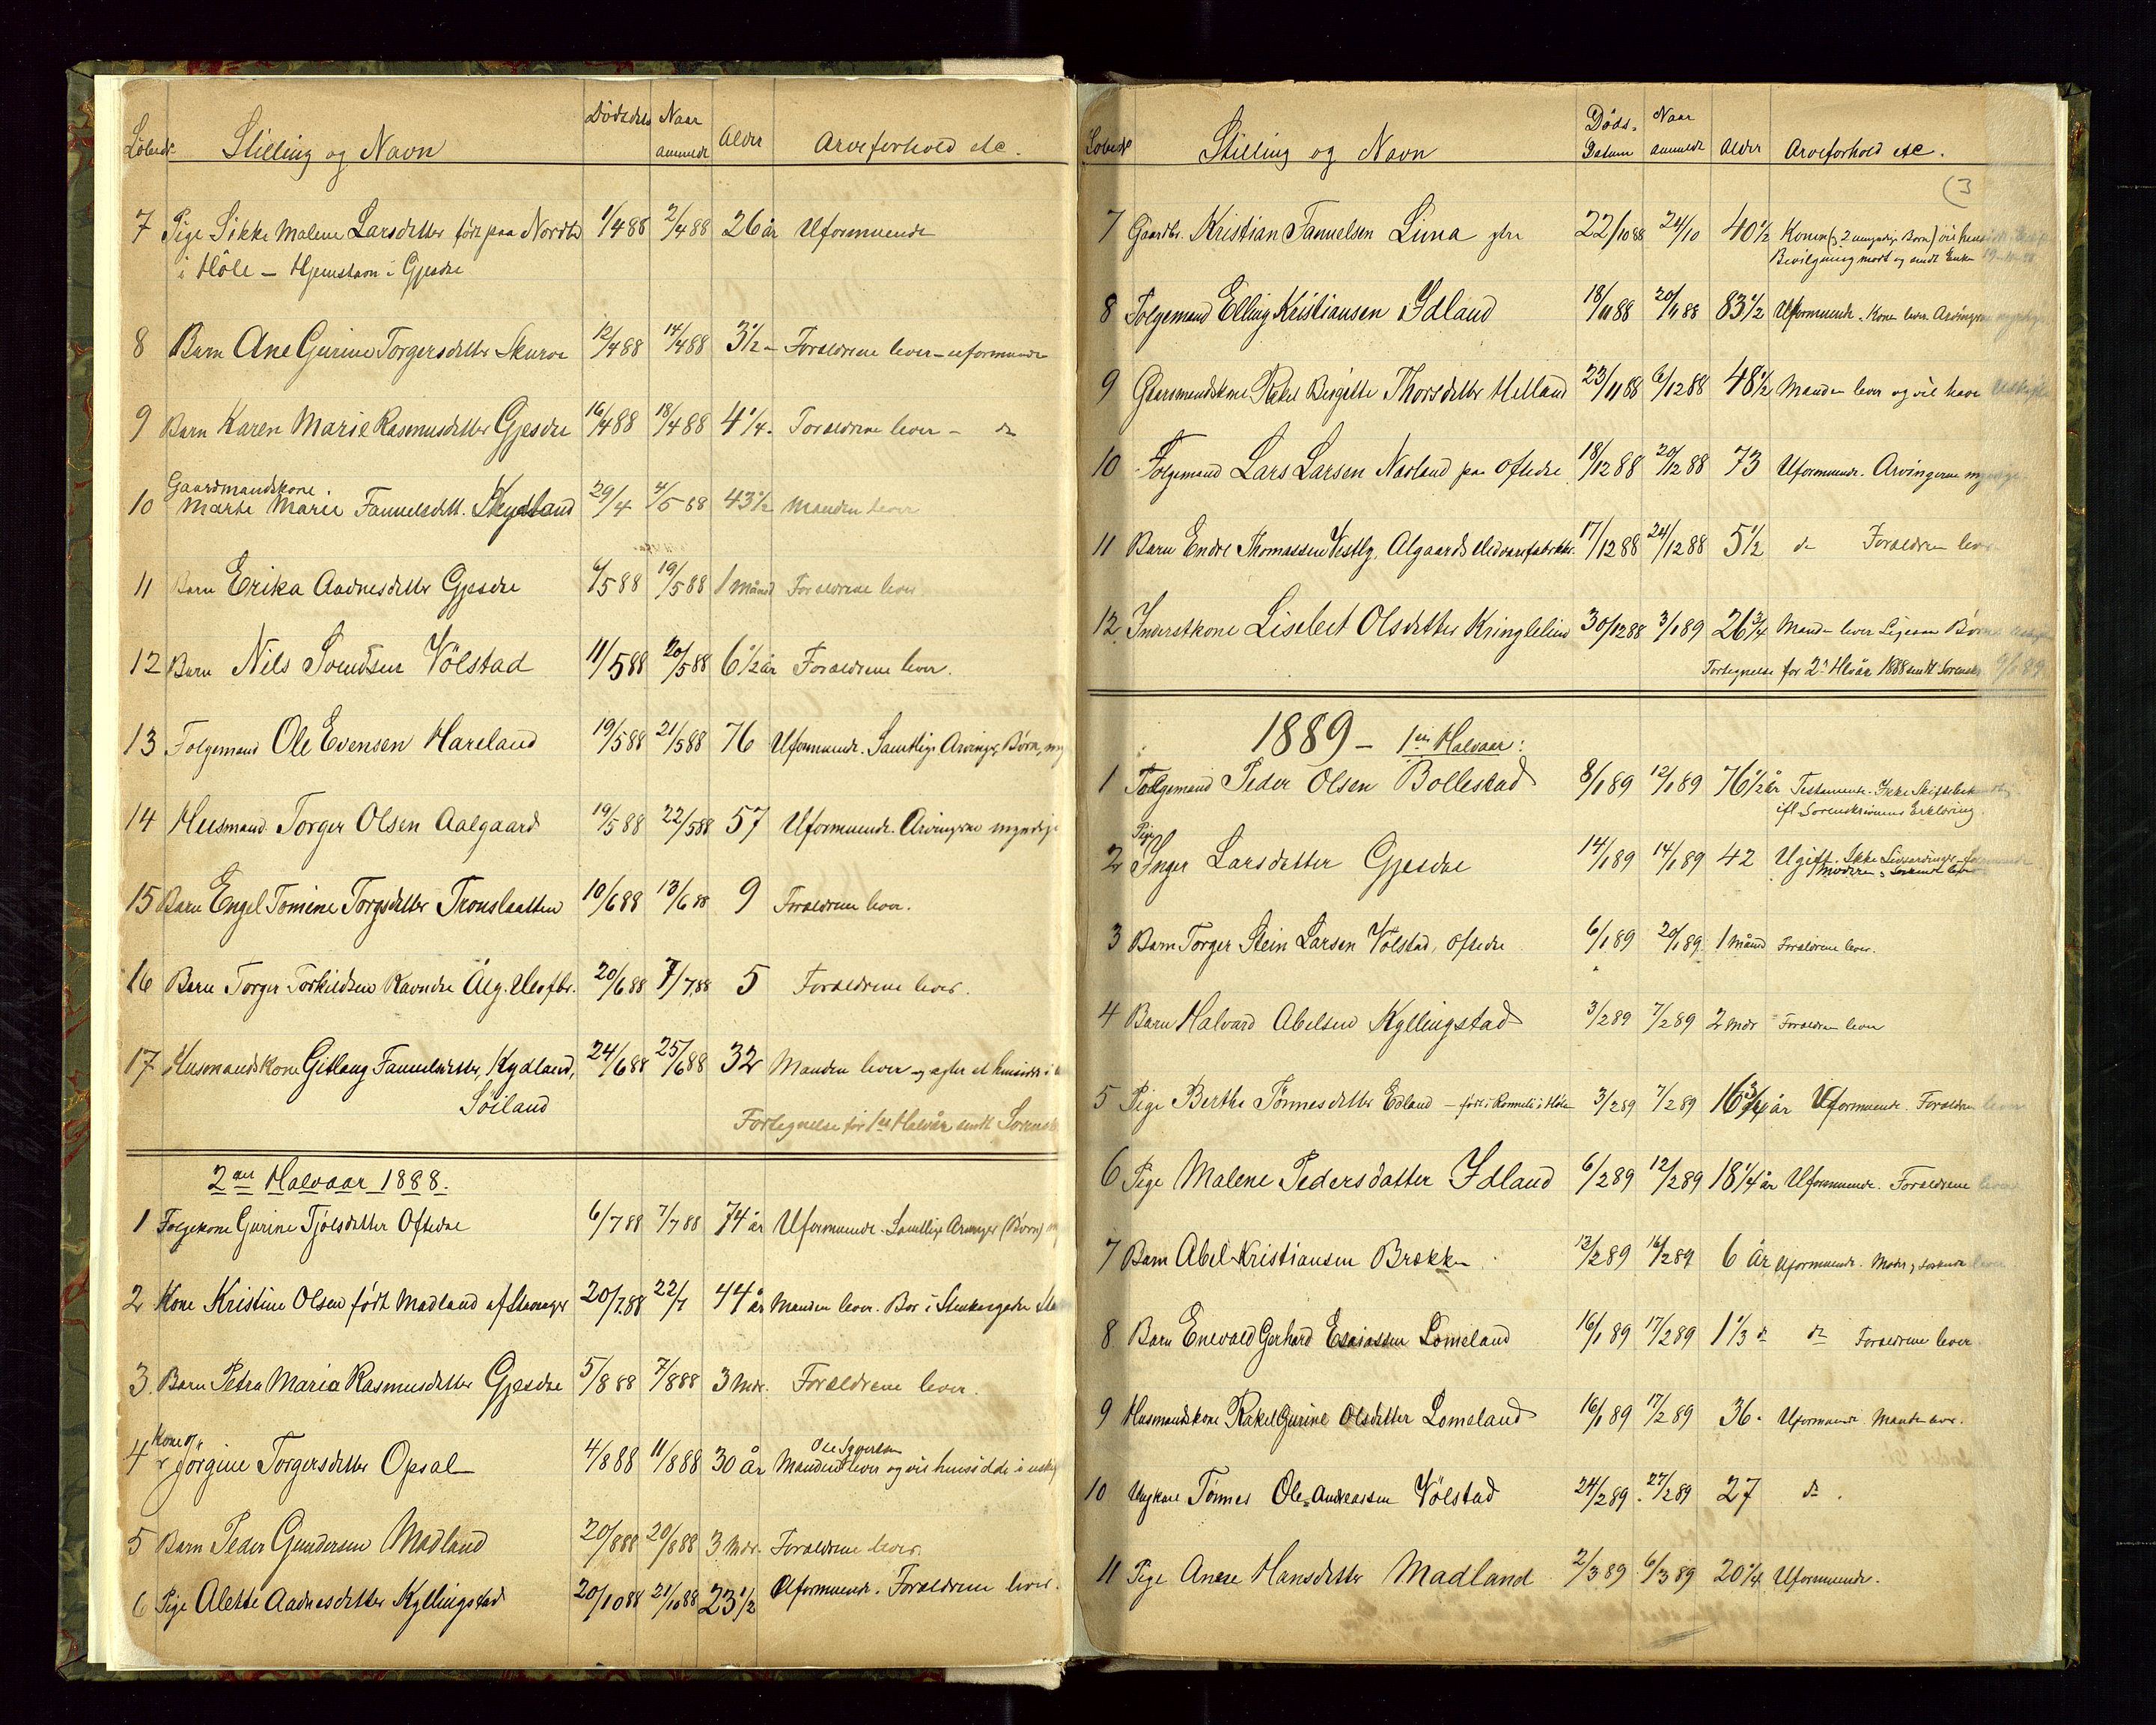 LøbeNr Stilling og Navn Dødsdato Naar anmeldt Alder Arveforhold etc.
7 Pige Sikke Malene Larsdatter født paa Nordb 1/4 88 2/4 88 26 år Uformuende
i Höle - Hjemstavn i Gjesdre
8 Barn Ane Gurine Torgersdatter Skurve 12/4 88 14/4 88 3 1/2 - Forældrene lever - uformuende
9 Barn Karen Marie Rasmusdatter Gjesdre 16/4 88 18/4 88 4 1/4 - Forældrene lever - do
Gaardmandskone
10 Marte Marie Fanuelsdatt. Kydland 29/4 4/5 88 43 1/2 Manden lever
11 Barn Erika Aadnesdatter Gjesdre 6/5 88 19/5 88 1 Månd Forældrene lever
12 Barn Nils Svendsen Völstad 11/5 88 20/5 88 6 1/2 år Forældrene lever.
13 Folgemand Ole Evensen Hareland 19/5 88 21/5 88 76 Uformuende. Samtlige Arvinger, Børn, my
14 Husmand Torger Olsen Aalgaard 19/5 88 22/5 88 57 Uformuende. Arvingerne myndige
15 Barn Engel Tomine Torgsdatter Tronslaatten 10/6 88 13/6 88 9 Forældrene lever.
16 Barn Torger Torkildsen Ravndre Ålg. Uldfbr. 20/6 88 7/7 88 5 Forældrene lever.
17 Husmandskone Gitlaug Fanuelsdatter, Kydland, 24/6 88 25/6 88 32 Manden lever og agter at hensidde i
Söiland
Fortegnelse for 1ste Halvår sendt Sorensk
2det Halvaar 1888.
1 Folgekone Gurine Tjølsdatter Oftedre 6/7 88 7/7 88 74 år Uformuende. Samtlige Arvinger (Børn)
2 Kone Kristine Olsen født Madland af Stavanger 20/7 88 22/7 44 år Manden lever. Bor i Stenkargaden Sta
3. Barn Petra Maria Rasmusdatter Gjesdre 5/8 88 7/8 88 3 Mdr. Forældrene lever.
Kone
4 Jörgine Torgersdatter Opsal 4/8 88 11/8 88 30 år Manden lever og vil hensidde i uski
5 Barn Peder Gundersen Madland 20/8 88 20/8 88 3 Mdr. Forældrene lever.
6 Pige Alette Aadnesdatter Kyllingstad 20/10 88 21/10 88 23 1/2 Uformuende. Forældrene lever.
LøbeN Stilling og Navn Døds-Datum Naar anmeldt Alder Arveforhold etc.
(3
7 Gaardbr. Kristian Fanuelsen Lima 22/10 88 24/10 40 1/2 Konen (og 2 umyndige Børn) vil hens
Bevilgning modt og sendt Enken
8 Folgemand Elling Kristiansen Ydland 18/11 88 20/11 88 83 1/2 Uformuende. Kone lever. Arvingerne myndige
9 Gaarmendskone Rakel Birgitte Thorsdatter Helland 23/11 88 6/12 88 48 1/2 Manden lever og vil have
10 Folgemand Lars Larsen Næsland paa Oftedre 18/12 88 20/12 88 73 Uformuende. Arvingerne myndige
11 Barn Endre Thomassen Vestly, Algaards Uldvarefabrikker. 17/12 88 24/12 88 5 1/2 do Forældren lever
12 Inderstkone Lisebet Olsdatter Kringlelien 30/12 88 3/1 89 26 3/4 Manden lever Ligesom Børn
Fortegnelse for 2det Hlvår 1888 sendt Sorensk 9/1 89
1889 - 1ste Halvaar:
1 Folgemand Peder Olsen Bollestad 8/1 89 12/1 89 76 1/2 år Testamente. Ikke Skiftebehandling
ifl. Sorenskriverens Erklæring.
Pige
2 Inger Larsdatter Gjesdre 14/1 89 14/1 89 42 Ugift. Ikke Livsarvinger
Moderen, Søskende lever
3 Barn Torger Stein Larsen Völstad, Oftedre 6/1 89 20/1 89 1 månd Forældrene lever.
4 Barn Halvard Abelsen Kyllingstad 3/2 89 7/2 89 2 mdr Forældren lever
5 Pige Berthe Tönnesdatter Edland - født i Rommeli i Höle 3/2 89 7/2 89 16 3/4 år Uformuende. Forældren lever
6 Pige Malene Pedersdatter Ydland 6/2 89 12/2 89 18 1/4 år Uformuende. Forældrene lever
7 Barn Abel Kristiansen Brekke 13/2 89 16/2 89 6 År Uformuende. Moder, Søskende lever
8 Barn Enevald Gerhard Esaiassen Lomeland 16/1 89 17/2 89 1 1/3 do do Forældrene lever
9 Husmandskone Rakel Gurine Olsdatter Lomeland 16/1 89 17/2 89 36 - Uformuende Manden lever.
10 Ungkarl Tönnes Ole Andreassen Völstad 24/2 89. 27/2 89 27 do.
11 Pige Anne Hansdatter Madland 2/3 89 6/3 89 20 1/4 Uformuende.